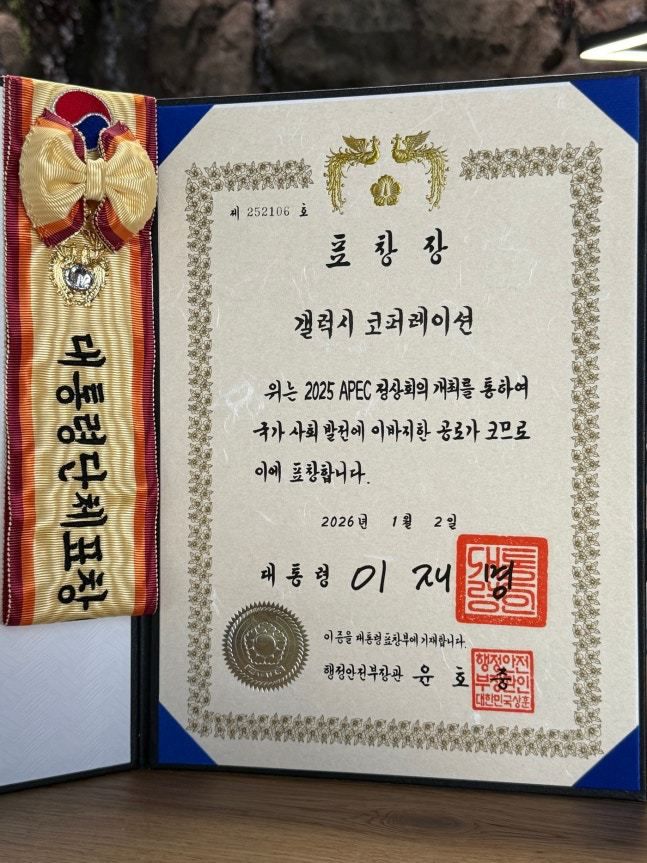 대통령단체표창
제 252106 호
표 창 장
갤럭시 코퍼레이션
위는 2025 APEC 정상회의 개최를 통하여
국가 사회 발전에 이바지한 공로가 크므로
이에 표창합니다.
2026년 1월 2일
대통령 이재명
대통령의인
이 증을 대통령표창부에 기재합니다.
행정안전부장관 윤호중
행정안전
부장관인
대한민국상훈